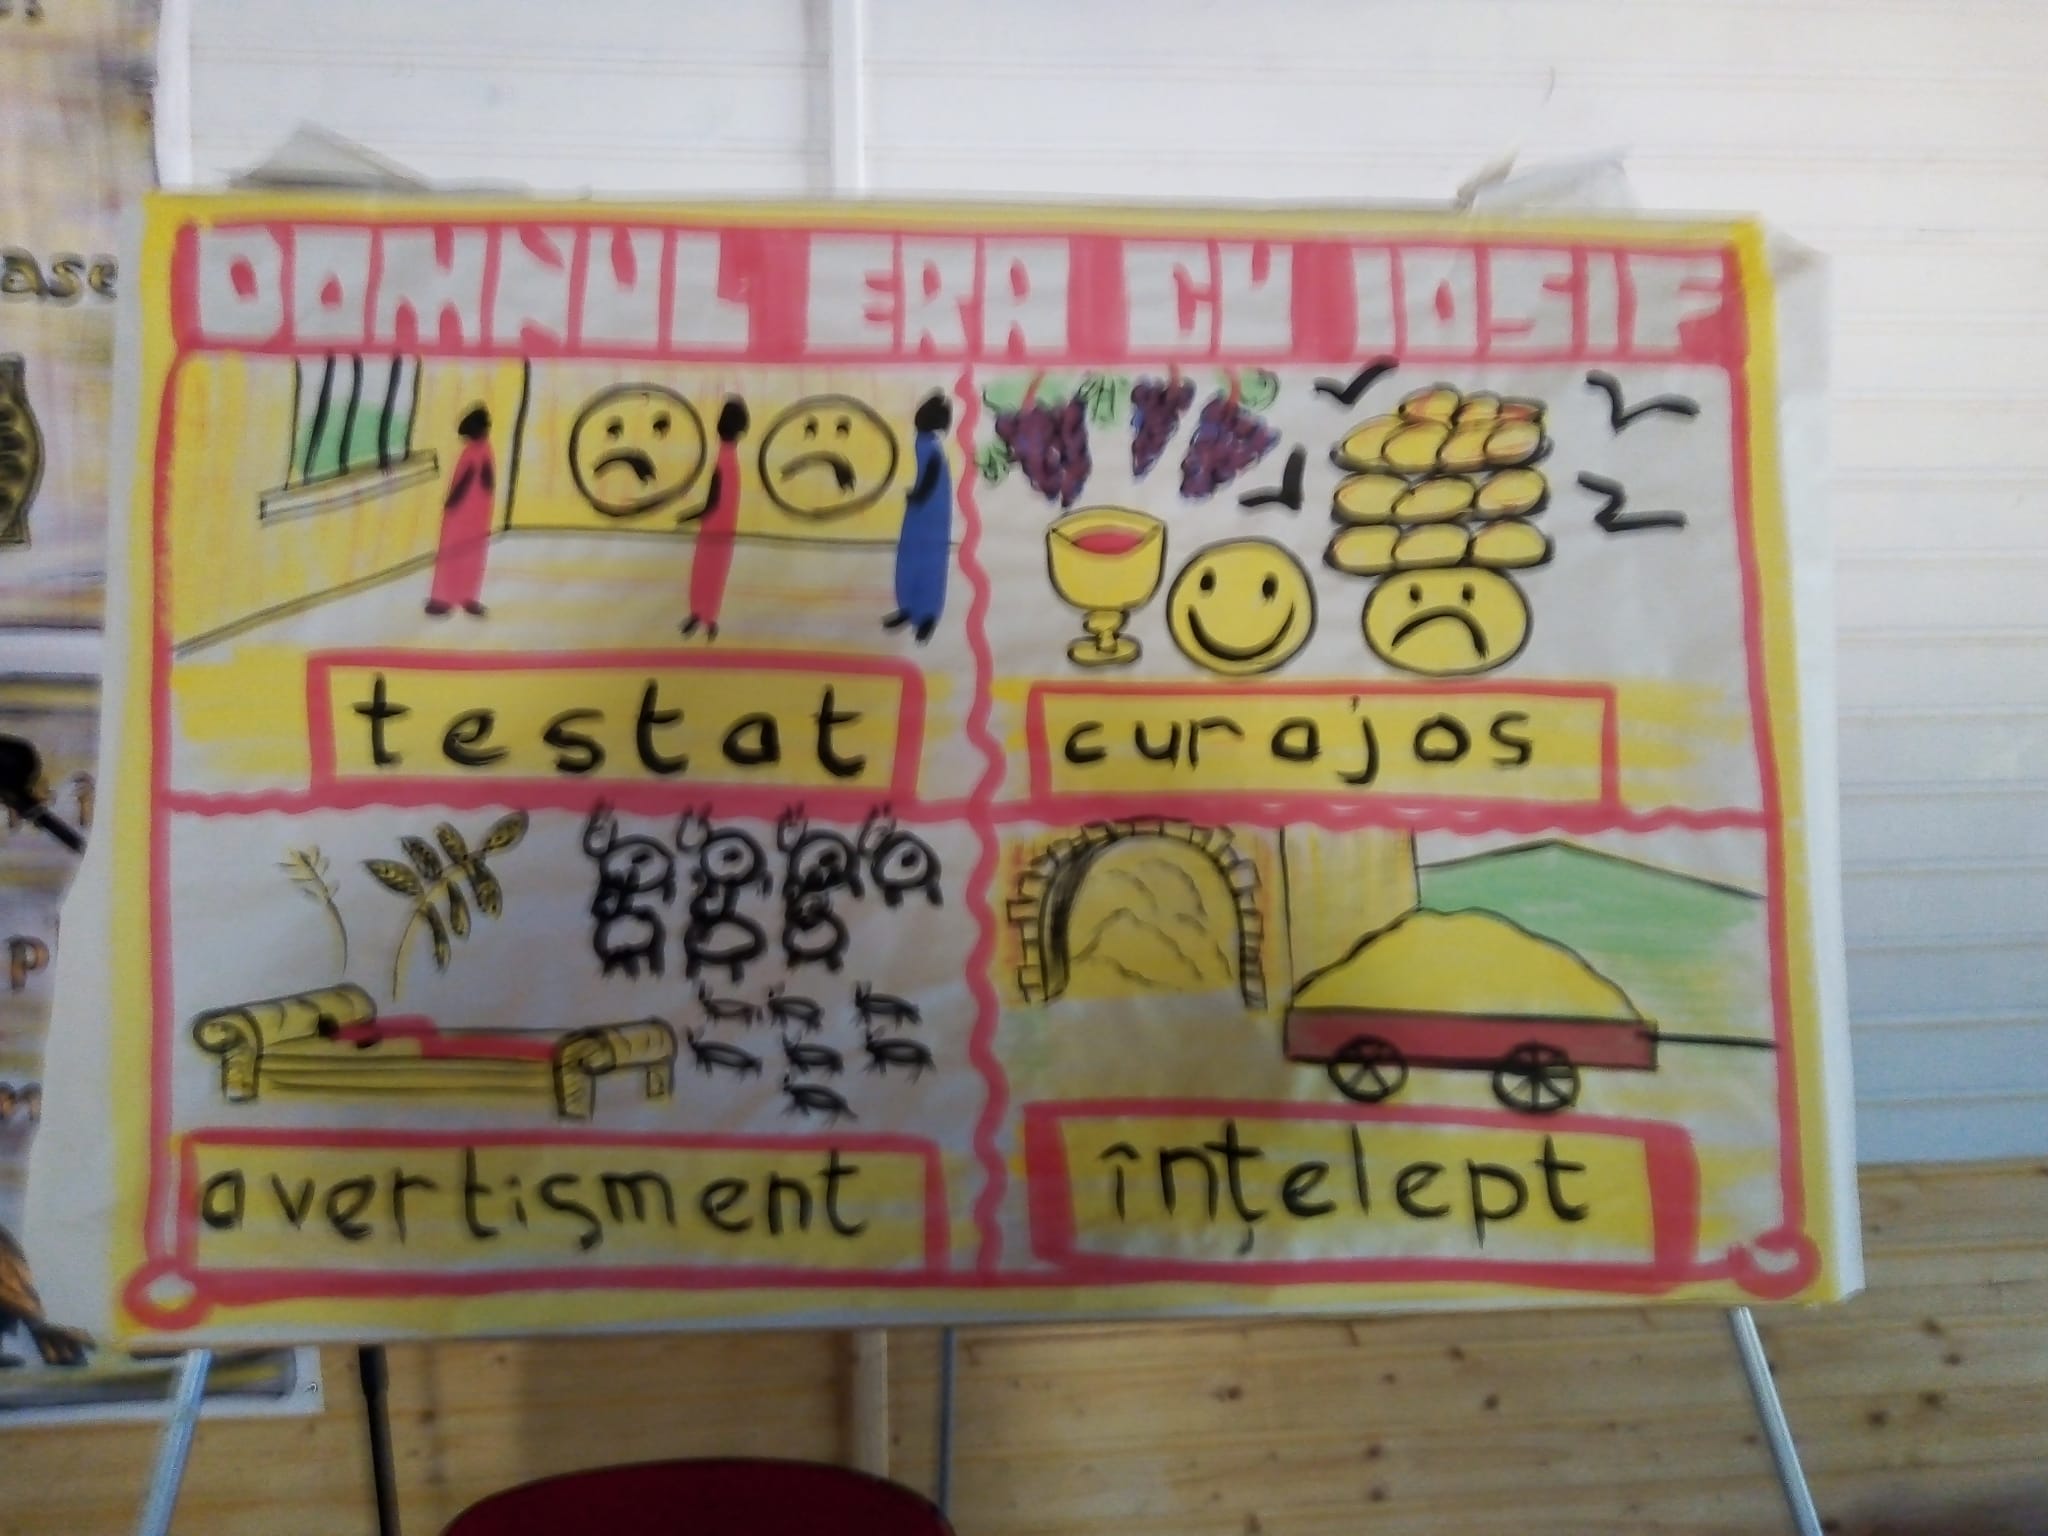 DOMNUL ERA CU IOSIF
testat
curajos
avertişment
înţelept
ase
p